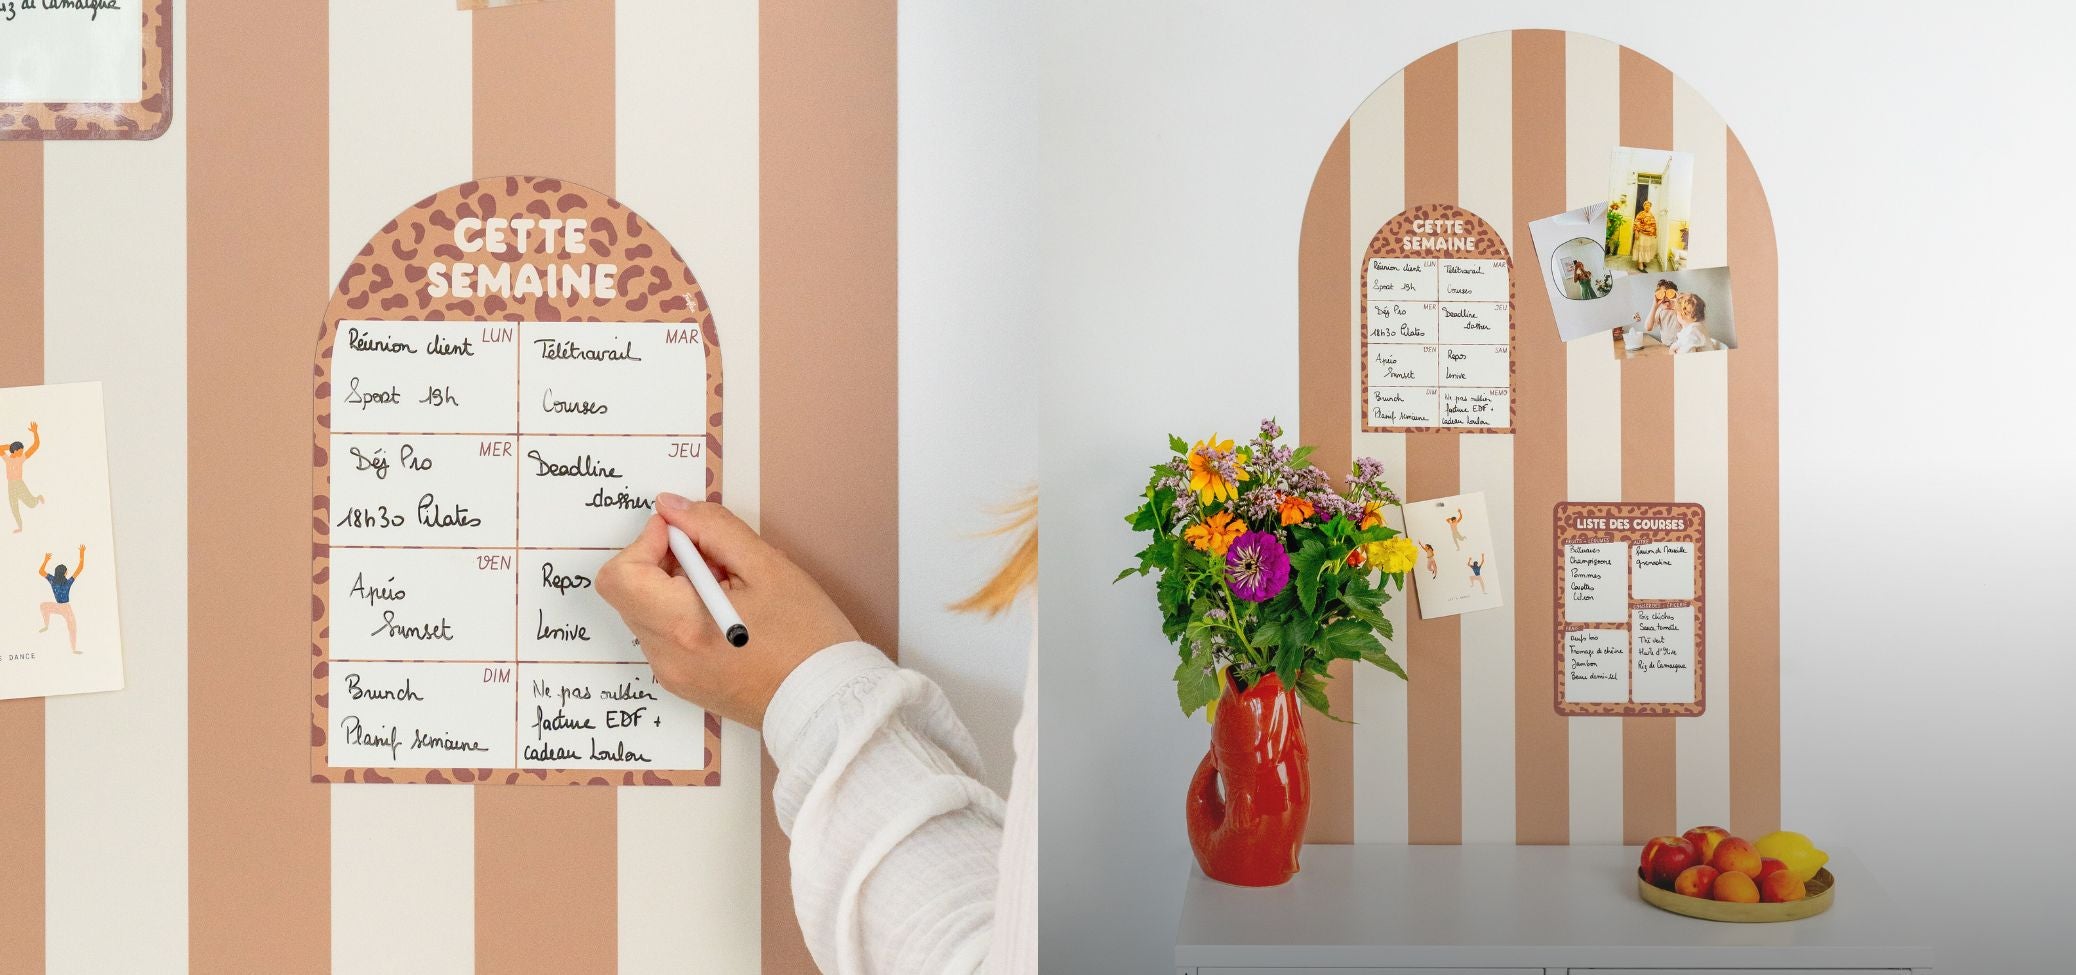 riz de Camargue
CETTE
SEMAINE
LUN
Réunion client
Sport 19h
MAR
Télétravail
Courses
MER
Déj Pro
18h30 Pilates
JEU
Deadline
dossier
VEN
Apéro
Sunset
Repos
lessive
DIM
Brunch
Planif semaine
Ne pas oublier
facture EDF +
cadeau Loulou
DANCE
CETTE
SEMAINE
LUN
Réunion client
Sport 19h
MAR
Télétravail
Courses
MER
Déj Pro
18h30 Pilates
JEU
Deadline
dossier
VEN
Apéro
Sunset
SAM
Repos
lessive
DIM
Brunch
Planif semaine
MEMO
Ne pas oublier
facture EDF +
cadeau Loulou
LISTE DES COURSES
FRUITS - LÉGUMES
Betteraves
Champignons
Pommes
Carottes
Citron
FRAIS
Oeufs bio
Fromage de chèvre
Jambon
Beurre demi-sel
AUTRE
Savon de Marseille
grenadine
CONSERVES - ÉPICERIE
Pois chiches
Sauce tomate
Thé vert
Huile d'olive
Riz de Camargue